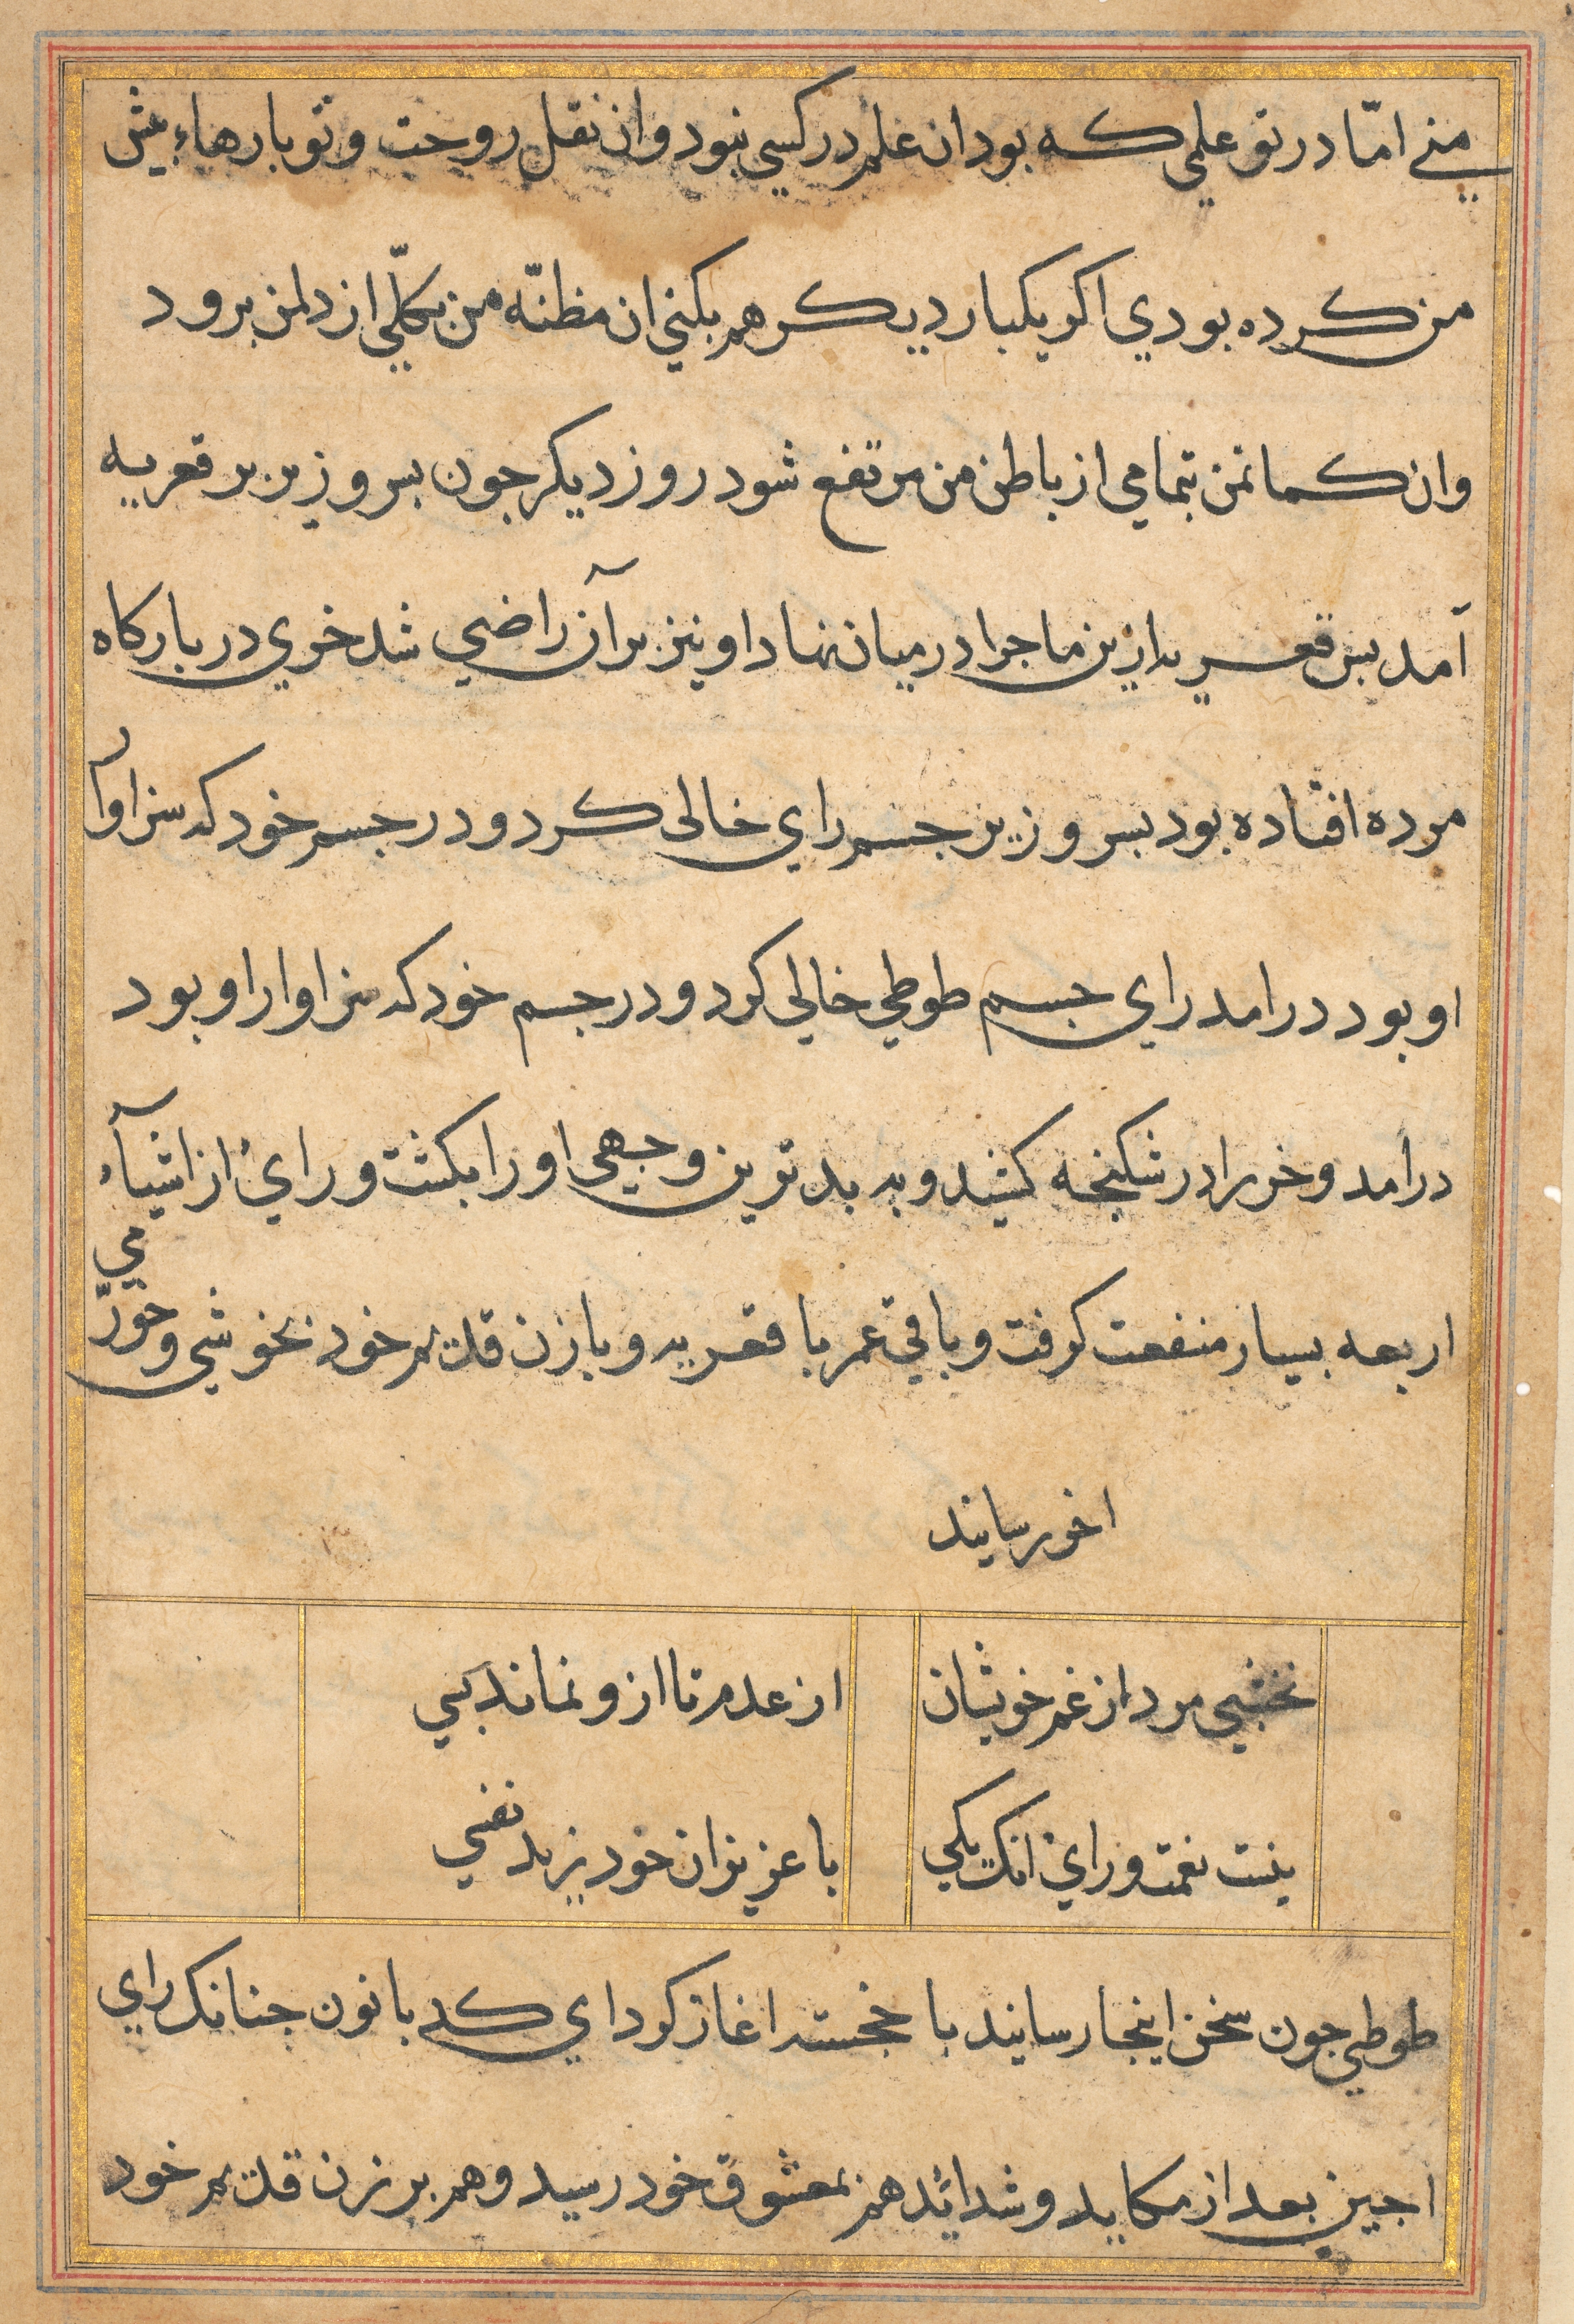 منے امّا در تو علمی که بود ان علم در کسی نبود وان نقل روحت و تو بارهاء بیش
من کرده بودي اکر یکبار دیکر هم بکنی ان مظنّه من بکلّی از دلمن برود
وان کمانمن بتمامي از باطن من مرتفع شود روز دیکر جون بس وزیر بر قعریه
آمد بس قعریه ازین ماجرا در میان نهاد او نیز بر آن راضي شد خري در بارکاه
مرده افتاده بود بس وزیر جسم راي خالی کرد و در جسم خود که سزاوار
او بود درامد راي جسم طوطي خالي کرد و در جسم خود که سزاوار او بود
درآمد و خر را در شکنجه کشید و به بدترین وجهی او را بکشت و رائ از اشیآء
اربعه بسیار منفعت کرفت و باقي عمر با قعریه و با زن قدیم خود بخوشي و خورّمي
اخور رسانید
نخشبي مرد از غم خویشان
از عدم تا ازو نماند بسي
نیست نعمت وراي انک یکي
با عزیزان خود بزید نفسي
طوطي جون سخن اینجا رسانید با خجسته اغاز کرد اي کدبانون جنانک راي
اجین بعد از مکاید و شدائد هم بمعشوق خود رسید و هم بر زن قدیم خود